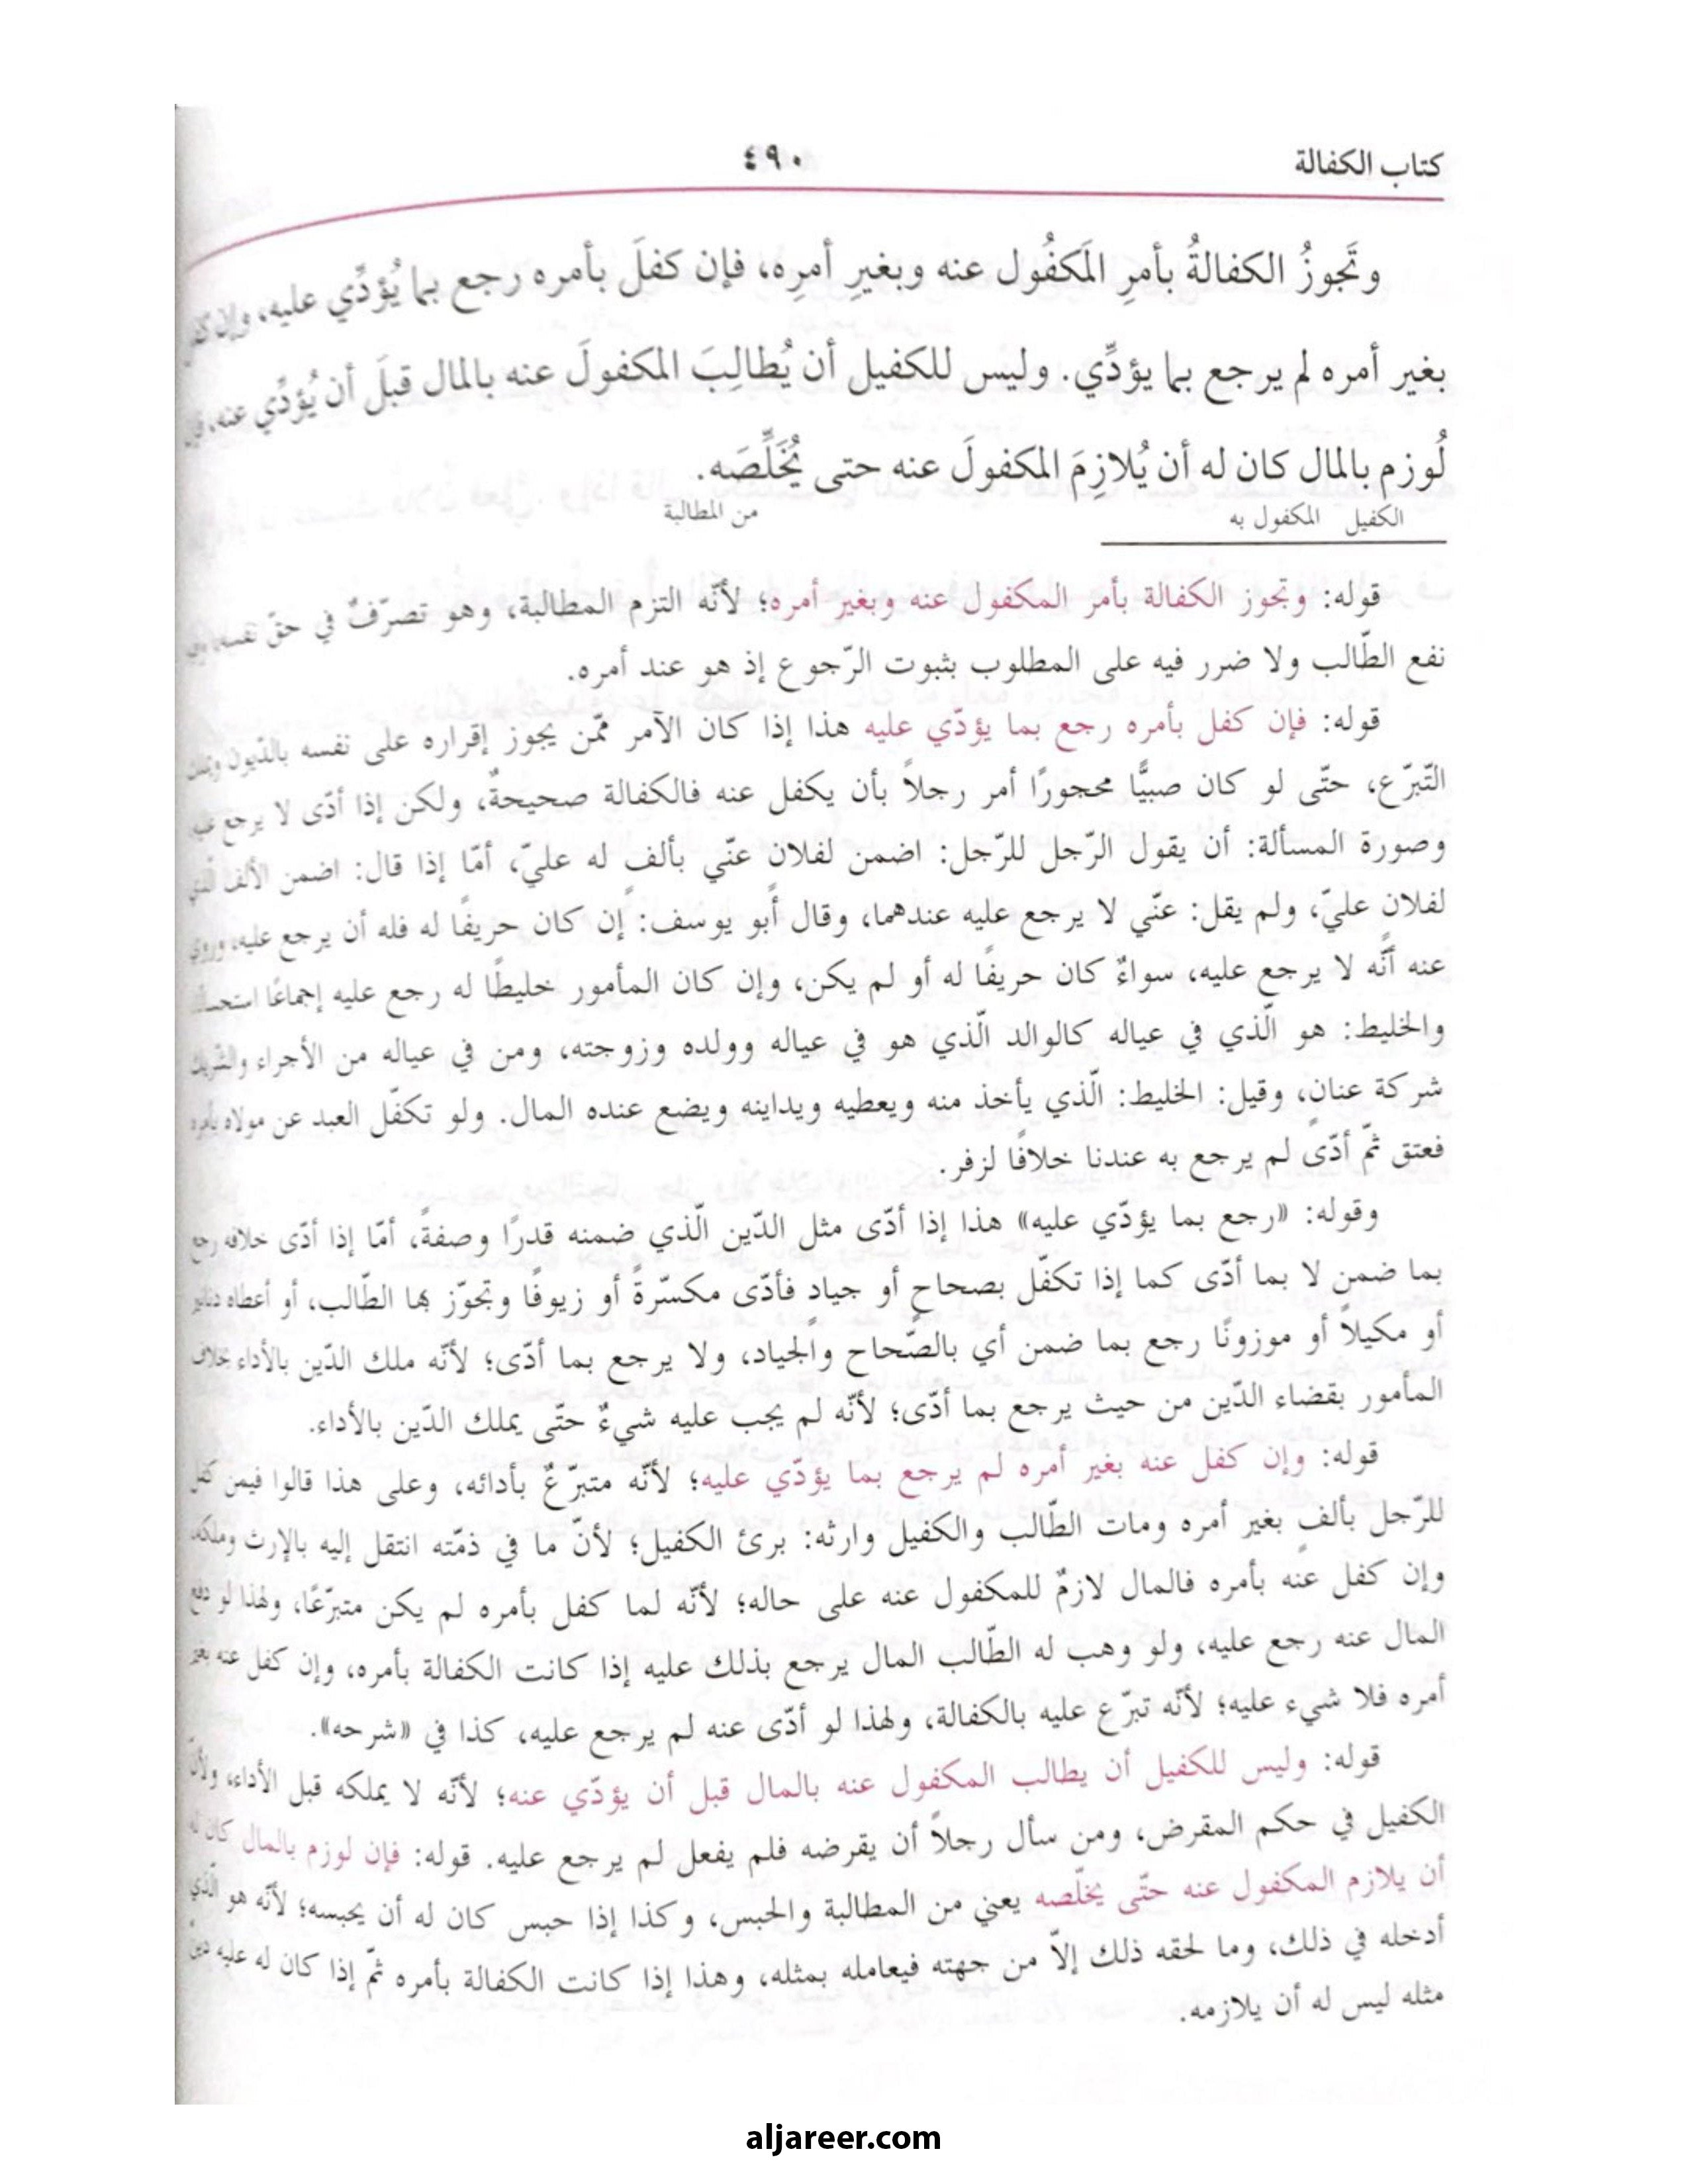 كتاب الكفالة ٤٩٠
وتَجوزُ الكفالةُ بأمرِ المَكفُول عنه وبغيرِ أمرِه، فإن كفلَ بأمره رجع بما يُؤدِّي عليه، وإن كفل
بغير أمره لم يرجع بما يؤدِّي. وليس للكفيل أن يُطالِبَ المكفولَ عنه بالمال قبلَ أن يُؤدِّي عنه، فإن
لُوزم بالمال كان له أن يُلازِمَ المكفولَ عنه حتى يُخَلِّصَه.
الكفيل المكفول به من المطالبة
قوله: وتجوز الكفالة بأمر المكفول عنه وبغير أمره؛ لأنّه التزم المطالبة، وهو تصرّفٌ في حقّ نفسه، وفيه
نفع الطّالب ولا ضرر فيه على المطلوب بثبوت الرّجوع إذ هو عند أمره.
قوله: فإن كفل بأمره رجع بما يؤدّي عليه هذا إذا كان الآمر ممّن يجوز إقراره على نفسه بالدّيون ويملك
التّبرّع، حتّى لو كان صبيًّا محجورًا أمر رجلاً بأن يكفل عنه فالكفالة صحيحةٌ، ولكن إذا أدّى لا يرجع عليه
وصورة المسألة: أن يقول الرّجل للرّجل: اضمن لفلان عنّي بألفٍ له عليّ، أمّا إذا قال: اضمن الألف الّذي
لفلانٍ عليّ، ولم يقل: عنّي لا يرجع عليه عندهما، وقال أبو يوسف: إن كان حريفًا له فله أن يرجع عليه، وروي
عنه أنّه لا يرجع عليه، سواءٌ كان حريفًا له أو لم يكن، وإن كان المأمور خليطًا له رجع عليه إجماعًا استحسانًا
والخليط: هو الّذي في عياله كالوالد الّذي هو في عياله وولده وزوجته، ومن في عياله من الأجراء والشّريك
شركة عنانٍ، وقيل: الخليط: الّذي يأخذ منه ويعطيه ويداينه ويضع عنده المال. ولو تكفّل العبد عن مولاه بأمره
فعتق ثمّ أدّى لم يرجع به عندنا خلافًا لزفر.
وقوله: «رجع بما يؤدّي عليه» هذا إذا أدّى مثل الدّين الّذي ضمنه قدرًا وصفةً، أمّا إذا أدّى خلافه رجع
بما ضمن لا بما أدّى كما إذا تكفّل بصحاحٍ أو جيادٍ فأدّى مكسّرةً أو زيوفًا وتجوّز بها الطّالب، أو أعطاه دنانير
أو مكيلاً أو موزونًا رجع بما ضمن أي بالصّحاح والجياد، ولا يرجع بما أدّى؛ لأنّه ملك الدّين بالأداء بخلاف
المأمور بقضاء الدّين من حيث يرجع بما أدّى؛ لأنّه لم يجب عليه شيءٌ حتّى يملك الدّين بالأداء.
قوله: وإن كفل عنه بغير أمره لم يرجع بما يؤدّي عليه؛ لأنّه متبرّعٌ بأدائه، وعلى هذا قالوا فيمن كفل
للرّجل بألفٍ بغير أمره ومات الطّالب والكفيل وارثه: برئ الكفيل؛ لأنّ ما في ذمّته انتقل إليه بالإرث وملكه،
وإن كفل عنه بأمره فالمال لازمٌ للمكفول عنه على حاله؛ لأنّه لما كفل بأمره لم يكن متبرّعًا، ولهذا لو دفع
المال عنه رجع عليه، ولو وهب له الطّالب المال يرجع بذلك عليه إذا كانت الكفالة بأمره، وإن كفل عنه بغير
أمره فلا شيء عليه؛ لأنّه تبرّع عليه بالكفالة، ولهذا لو أدّى عنه لم يرجع عليه، كذا في «شرحه».
قوله: وليس للكفيل أن يطالب المكفول عنه بالمال قبل أن يؤدّي عنه؛ لأنّه لا يملكه قبل الأداء، ولأنّ
الكفيل في حكم المقرض، ومن سأل رجلاً أن يقرضه فلم يفعل لم يرجع عليه. قوله: فإن لوزم بالمال كان له
أن يلازم المكفول عنه حتّى يخلّصه يعني من المطالبة والحبس، وكذا إذا حبس كان له أن يحبسه؛ لأنّه هو الّذي
أدخله في ذلك، وما لحقه ذلك إلاّ من جهته فيعامله بمثله، وهذا إذا كانت الكفالة بأمره ثمّ إذا كان له عليه دينٌ
مثله ليس له أن يلازمه.
aljareer.com